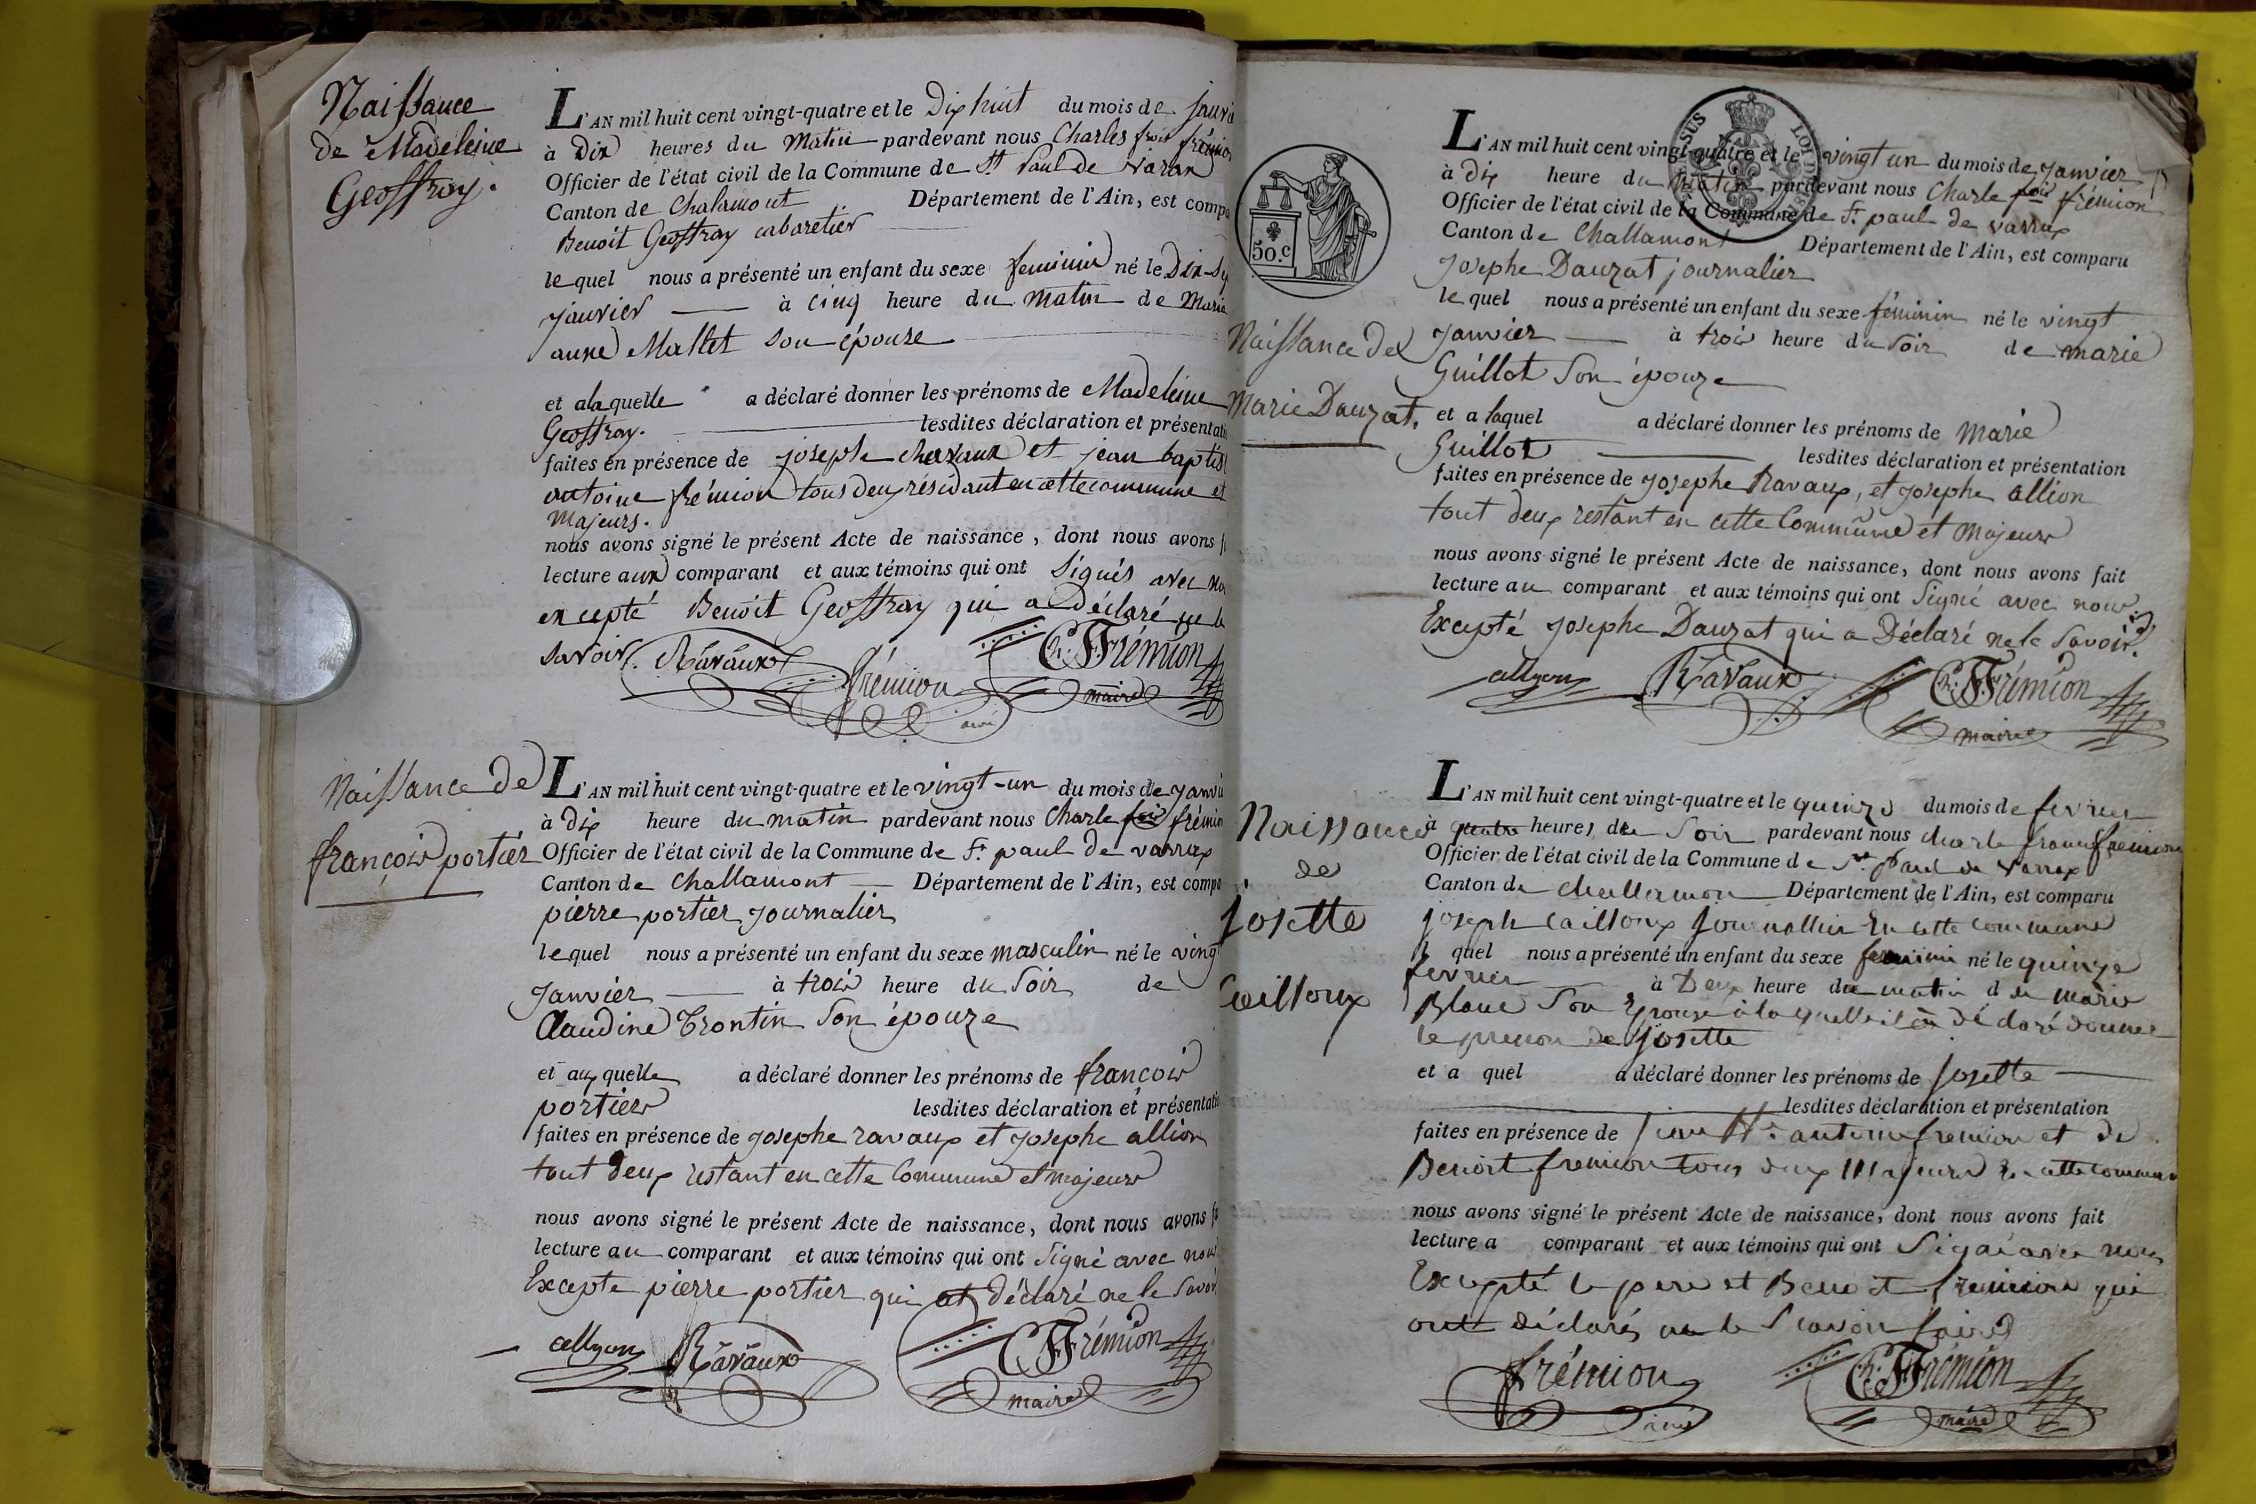 Naissance
de Madeleine
Geoffray.
L'AN mil huit cent vingt-quatre et le Dix huit du mois de Janvie
à Dix heures du Matin pardevant nous Charles fois frémion
Officier de l'état civil de la Commune de St Paul de Varax
Canton de Chalamont Département de l'Ain, est compa
Benoit Geoffray cabaretier
le quel nous a présenté un enfant du sexe feminin né le Dix-
janvier à cinq heure du Matin de Marie
anne Mallet son épouse
et alaquelle a déclaré donner les prénoms de Madeleine
Geoffray. lesdites déclaration et présentati
faites en présence de joseph et jean baptist
antoine frémion tous deux résidant en cette commune et
Majeurs.
nous avons signé le présent Acte de naissance, dont nous avons f
lecture aux comparant et aux témoins qui ont Signés avec no
excepté Benoit Geoffray qui a Déclaré ne le
savoir. Ravaux frémion Ch. F. Frémion
maire
Naissance de
françois portier
L'AN mil huit cent vingt-quatre et le vingt-un du mois de Janvi
à dix heure du matin pardevant nous Charle fois frémion
Officier de l'état civil de la Commune de St. paul de varrax
Canton de Challamont Département de l'Ain, est compa
pierre portier Journalier
le quel nous a présenté un enfant du sexe masculin né le vingt
Janvier à trois heure du Soir de
Claudine Trontin Son épouze
et auxquelle a déclaré donner les prénoms de françois
portier lesdites déclaration et présentatio
faites en présence de Josephe ravaux et Josephe allion
tout deux restant en cette Commune et majeurs
nous avons signé le présent Acte de naissance, dont nous avons f
lecture au comparant et aux témoins qui ont Signé avec nous
Excepte pierre portier qui at Déclaré ne le Savoir
allyon Ravaux Ch. F. Frémion
maire
50.c
SUS LOI D
L'AN mil huit cent vingt-quatre et le vingt un du mois de Janvier
à dix heure du Matin pardevant nous Charle fois frémion
Officier de l'état civil de la Commune de St. paul de varrax
Canton de Challamont Département de l'Ain, est comparu
Josephe Dauzat journalier
le quel nous a présenté un enfant du sexe féminin né le vingt
Naissance de
Marie Dauzat.
Janvier à trois heure du Soir de marie
Guillot Son épouze
et a laquel a déclaré donner les prénoms de marie
Guillot lesdites déclaration et présentation
faites en présence de Josephe Ravaux, et Josephe allion
tout deux restant en cette Commune et Majeurs
nous avons signé le présent Acte de naissance, dont nous avons fait
lecture au comparant et aux témoins qui ont Signé avec nous
Excepté Josephe Dauzat qui a Déclaré ne le Savoir.
allyon Ravaux Ch. F. Frémion
maire
Naissance
de
josette
Cailloux
L'AN mil huit cent vingt-quatre et le quinze du mois de fevrier
à quatre heures du Soir pardevant nous charle francois fremion
Officier de l'état civil de la Commune de St paul de Varrax
Canton de challamon Département de l'Ain, est comparu
joseph Cailloux journallier En cette commune
l quel nous a présenté un enfant du sexe feminin né le quinze
fevrier à Deux heure du matin d de marie
Blanc Son Epouse à la quelle il a dé claré donner
le prenon de josette
et a quel a déclaré donner les prénoms de josette
lesdites déclaration et présentation
faites en présence de jean Bte antoine fremion et de
Benoit fremion tous deux Majeurs En cette commune
nous avons signé le présent Acte de naissance, dont nous avons fait
lecture a comparant et aux témoins qui ont Signé avec nous
Excepté le pere et Benoit fremion qui
ont déclarés ne le Scavoir faire
frémion Ch. F. Frémion
maire